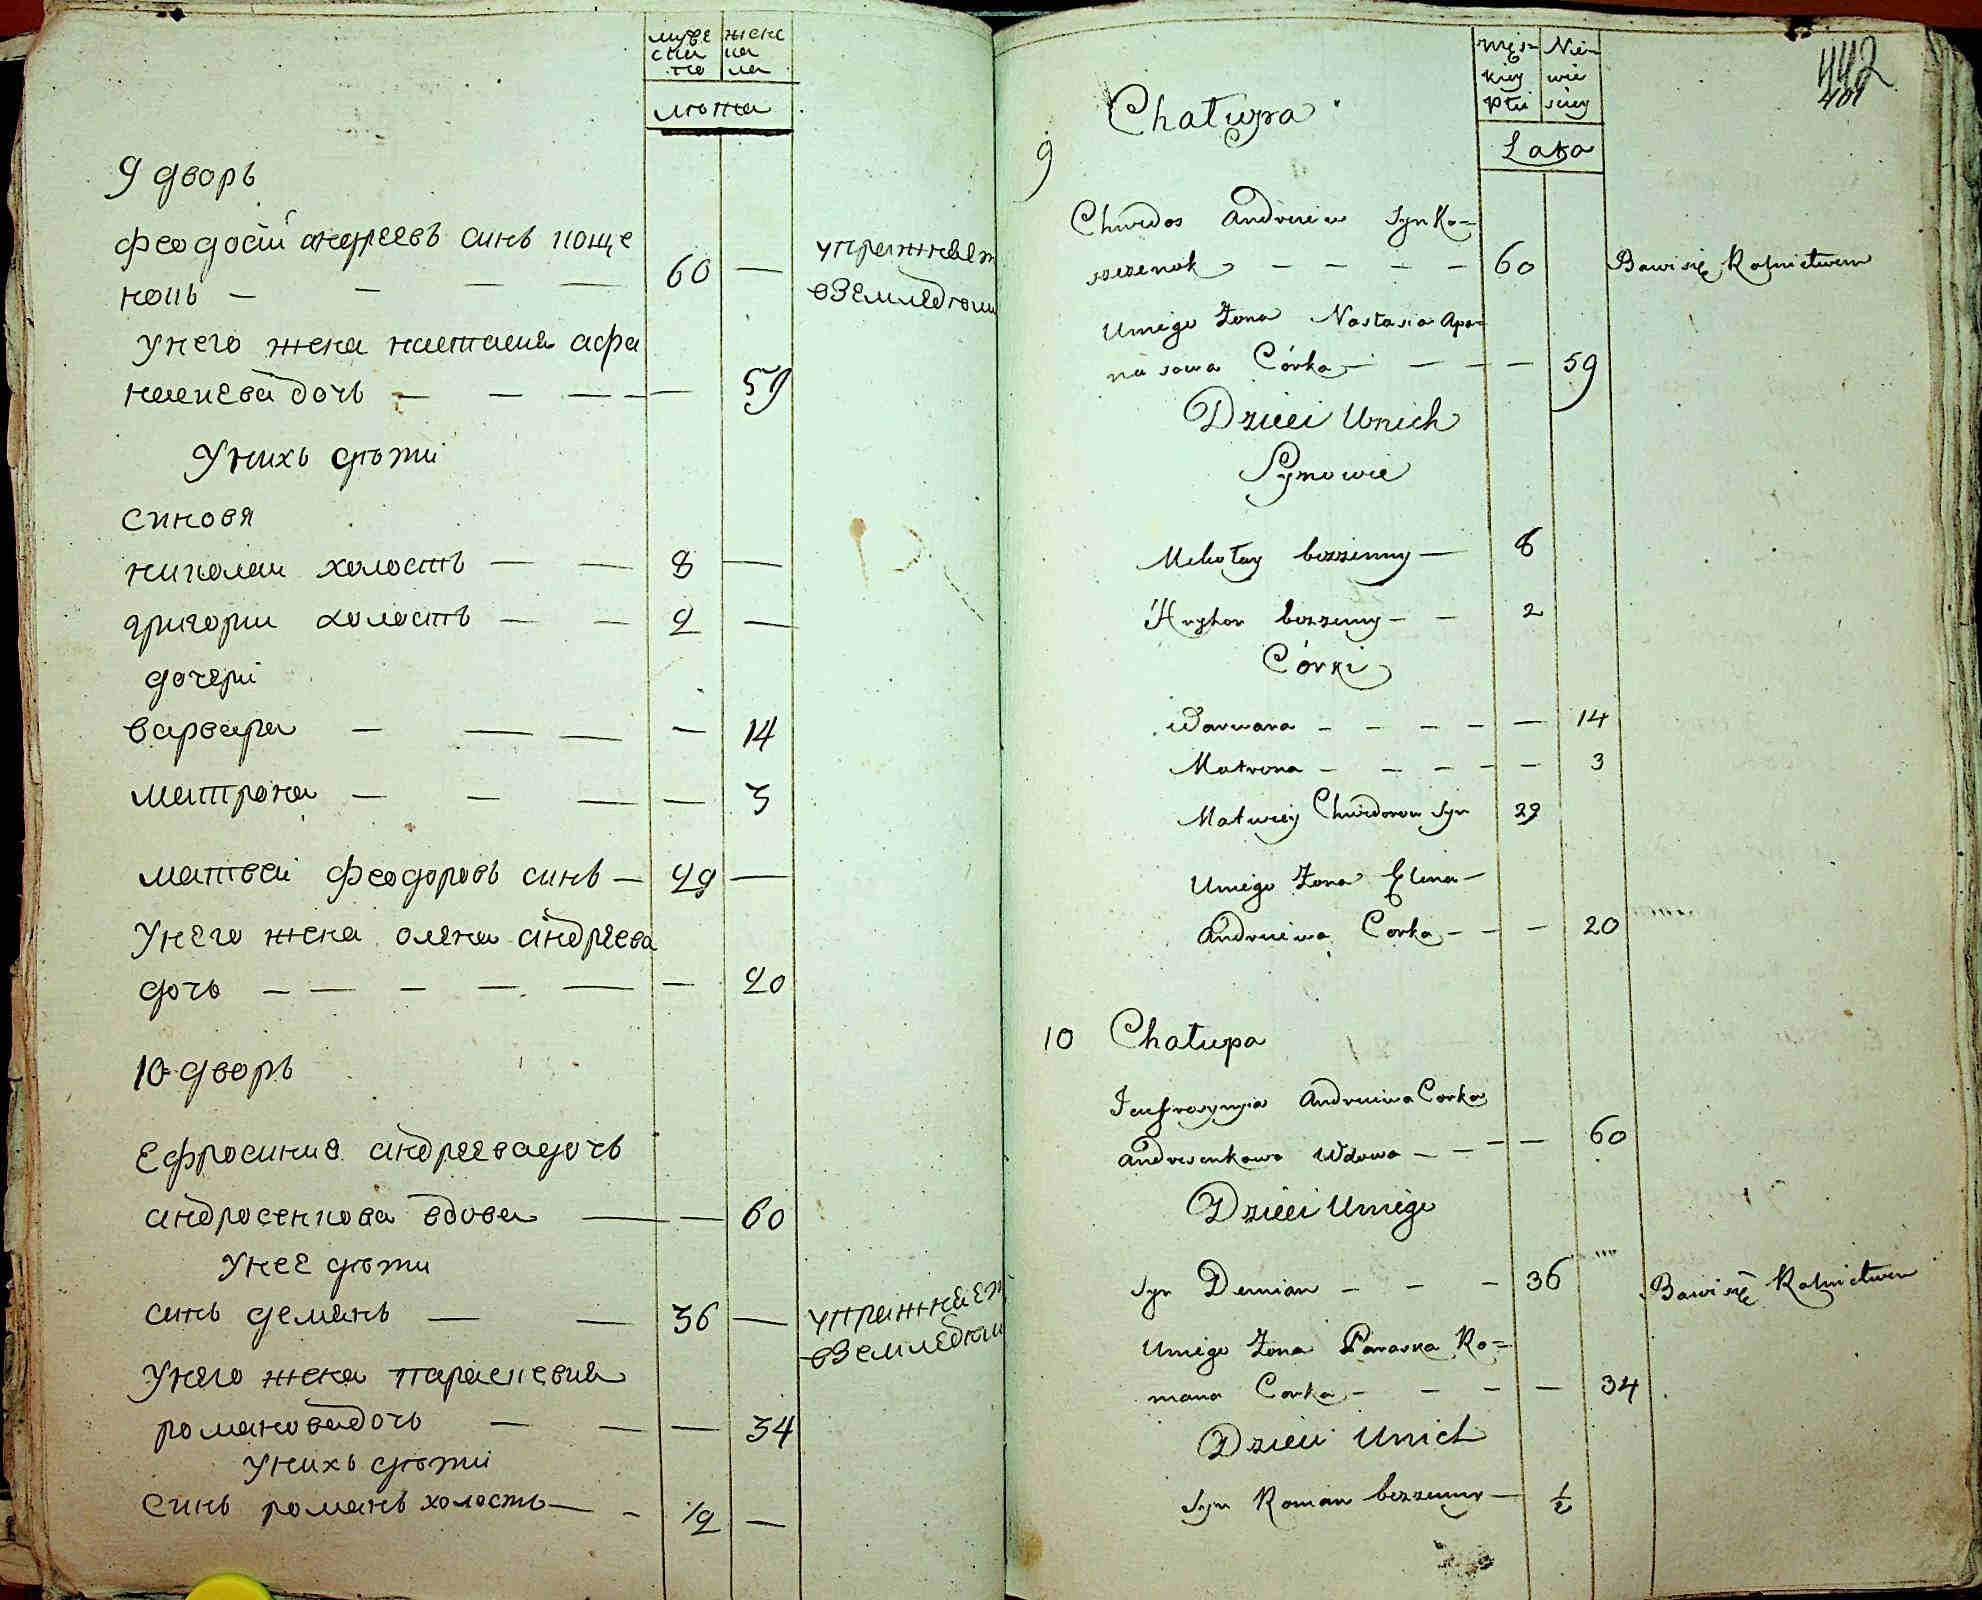 муже жене
ска на
го ла
люта
9 дворъ
феодосіи андреевъ синъ коще
нокъ — — — — 60 — упражняет
вземледѣлии
унего жена настасия афа
насиева дочь — — — — 59
Унихъ дѣти
синовя
николаи холостъ — — 8 —
григории холостъ — — 2 —
дочери
варвара — — — — 14
матрона — — — — 3
матвеи феодоровъ синъ — 29 —
Унего жена олена андреева
дочь — — — — — — 20
10 дворъ
Ефросиния андреевадочъ
андросенкова вдова — — 60
Унее дѣти
синъ демянъ — — 36 — упражняет
вземледѣлии
Унего жена параскевия
романовадочь — — — 34
Унихъ дѣти
Синъ романъ холостъ — - 1/2 —
męz= Nie=
kiey wie
płci sciey
Lata
442
401
9 Chałupa
Chwedos Andreiew Syn Ko=
szczenok — — — — 60 Bawi się Rolnictwem
Uniego Żona Nastasia Apa=
nasowa Córka — — — — 59
Dzieci Unich
Synowie
Mikołay bezzenny — 8
Hryhor bezzenny — — 2
Córki
Warwara — — — — — 14
Matrona — — — — — 3
Matwiey Chwedorow Syn 29
Uniego Żona Elena —
Andreiewa Corka — — — 20
10 Chałupa
Jeufrosynyia Andreiewa Corka
Androsenkowa Wdowa — — — — 60
Dzieci Uniego
Syn Demian — — — 36 Bawi się Rolnictwem
Uniego Żona Paraska Ro=
mana Corka — — — — 34
Dzieci Unich
Syn Roman bezzenny — 1/2